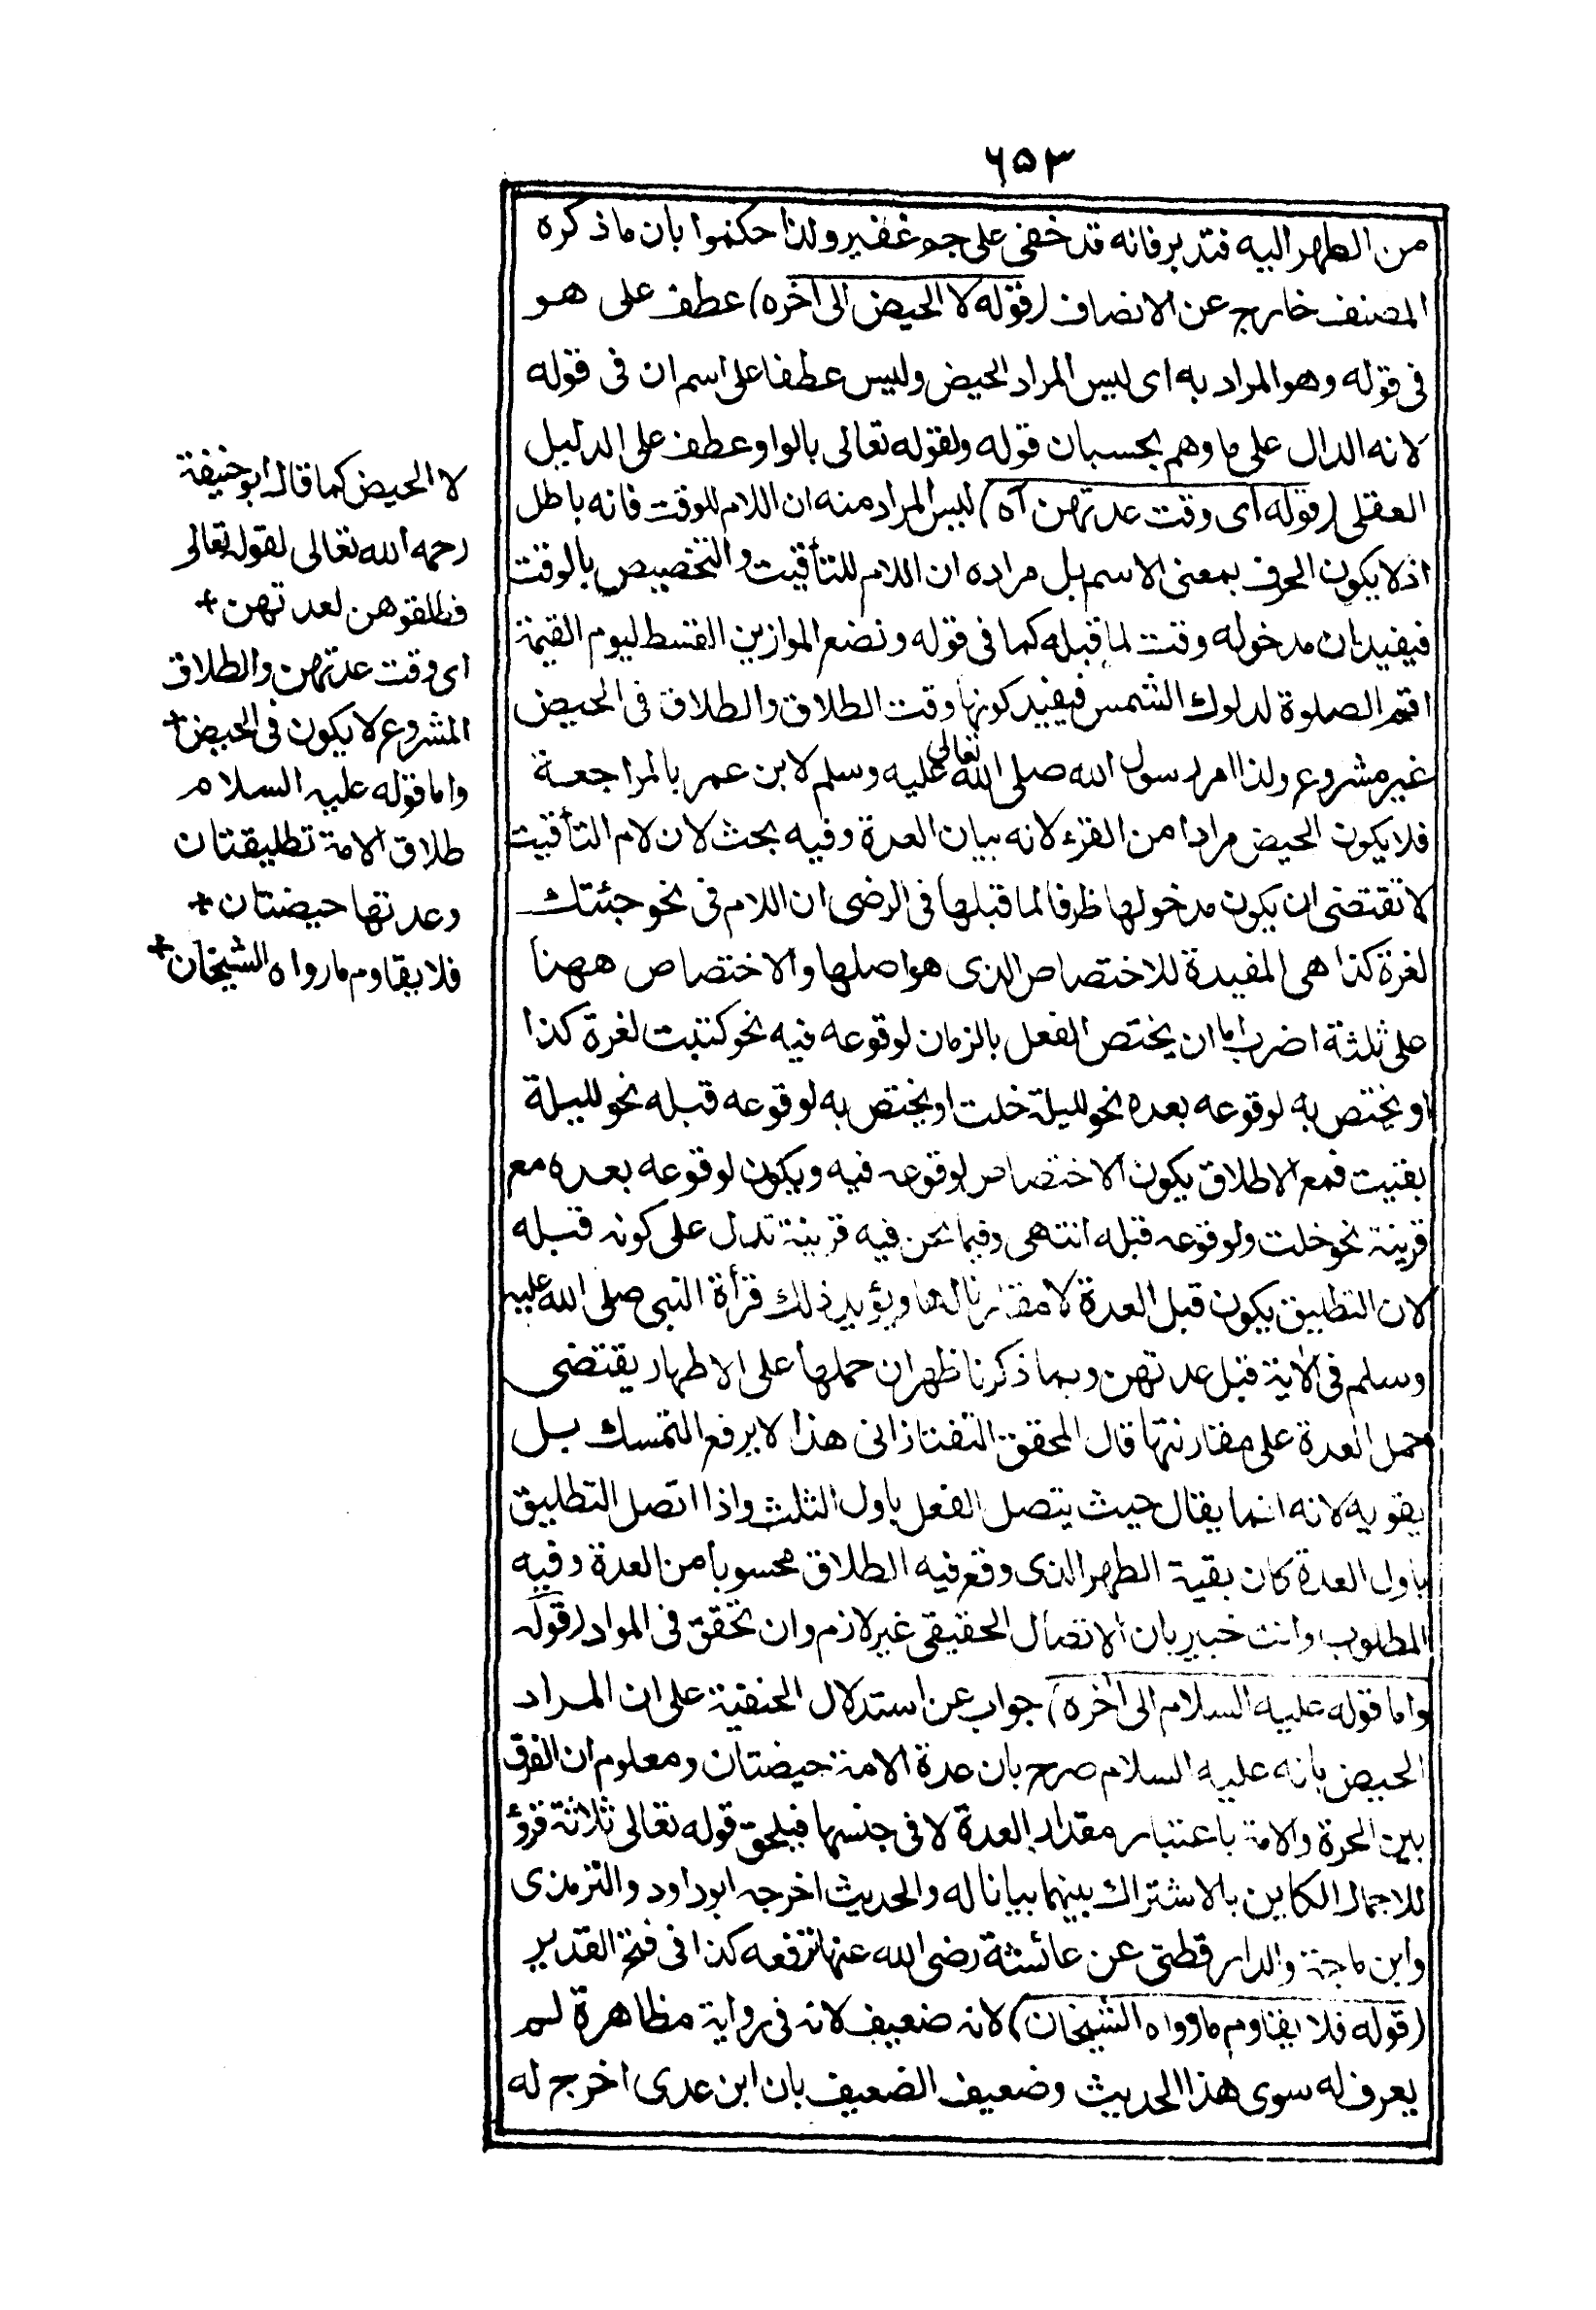 ٦٥٣
من الطهر اليه فتدبر فانه قد خفى على جم غفير ولذا حكموا بان ما ذكره
المصنف خارج عن الانصاف (قوله لا الحيض الى اخره) عطف على هو
فى قوله وهو المراد به اى ليس المراد الحيض وليس عطفا على اسم ان فى قوله
لانه الدال على ما وهم بحسبان قوله ولقوله تعالى بالواو عطف على الدليل
العقلى (قوله اى وقت عدتهن آه) ليس المراد منه ان اللام للوقت فانه باطل
اذ لا يكون الحرف بمعنى الاسم بل مراده ان اللام للتأقيت والتخصيص بالوقت
فيفيد ان مدخوله وقت لما قبله كما فى قوله ونضع الموازين القسط ليوم القيمة
اقم الصلوة لدلوك الشمس فيفيد كونها وقت الطلاق والطلاق فى الحيض
غير مشروع ولذا امر رسول الله صلى الله تعالى عليه وسلم لابن عمر بالمراجعة
فلا يكون الحيض مرادا من القرء لانه بيان العدة وفيه بحث لان لام التأقيت
لا تقتضى ان يكون مدخولها ظرفا لما قبلها فى الرضى ان اللام فى نحو جئتك
لغرة كذا هى المفيدة للاختصاص الذى هو اصلها والاختصاص ههنا
على ثلثة اضرب اما ان يختص الفعل بالزمان لوقوعه فيه نحو كتبت لغرة كذا
او يختص به لوقوعه بعده نحو لليلة خلت او يختص به لوقوعه قبله نحو لليلة
بقيت فمع الاطلاق يكون الاختصاص لوقوعه فيه ويكون لوقوعه بعده مع
قرينة نحو خلت ولوقوعه قبله انتهى وفيما نحن فيه قرينة تدل على كونه قبله
لان التطليق يكون قبل العدة لا مقارنا لها ويؤيد ذلك قرأة النبى صلى الله عليه
وسلم فى الآية قبل عدتهن وبما ذكرنا ظهر ان حملها على الاطهار يقتضى
حمل العدة على مقارنتها قال المحقق التفتازانى هذا لا يرفع التمسك بل
يقويه لانه انما يقال حيث يتصل الفعل باول الثلث واذا اتصل التطليق
باول العدة كان بقية الطهر الذى وقع فيه الطلاق محسوبا من العدة وفيه
المطلوب وانت خبير بان الاتصال الحقيقى غير لازم وان تحقق فى المواد (قوله
واما قوله عليه السلام الى اخره) جواب عن استدلال الحنفية على ان المراد
الحيض بانه عليه السلام صرح بان عدة الامة حيضتان ومعلوم ان الفرق
بين الحرة والامة باعتبار مقدار العدة لا فى جنسها فيلحق قوله تعالى ثلاثة قروؤ
للاجمال الكاين بالاشتراك بينهما بيانا له والحديث اخرجه ابو داود والترمذى
وابن ماجة والدار قطنى عن عائشة رضى الله عنها ترفعه كذا فى فتح القدير
(قوله فلا يقاوم ما رواه الشيخان) لانه ضعيف لانه فى رواية مظاهرة لم
يعرف له سوى هذا الحديث وضعيف الضعيف بان ابن عدى اخرج له
لا الحيض كما قال ابو حنيفة
رحمه الله تعالى لقوله تعالى
فطلقوهن لعدتهن +
اى وقت عدتهن والطلاق
المشروع لا يكون فى الحيض +
واما قوله عليه السلام
طلاق الامة تطليقتان
وعدتها حيضتان +
فلا يقاوم ما رواه الشيخان +